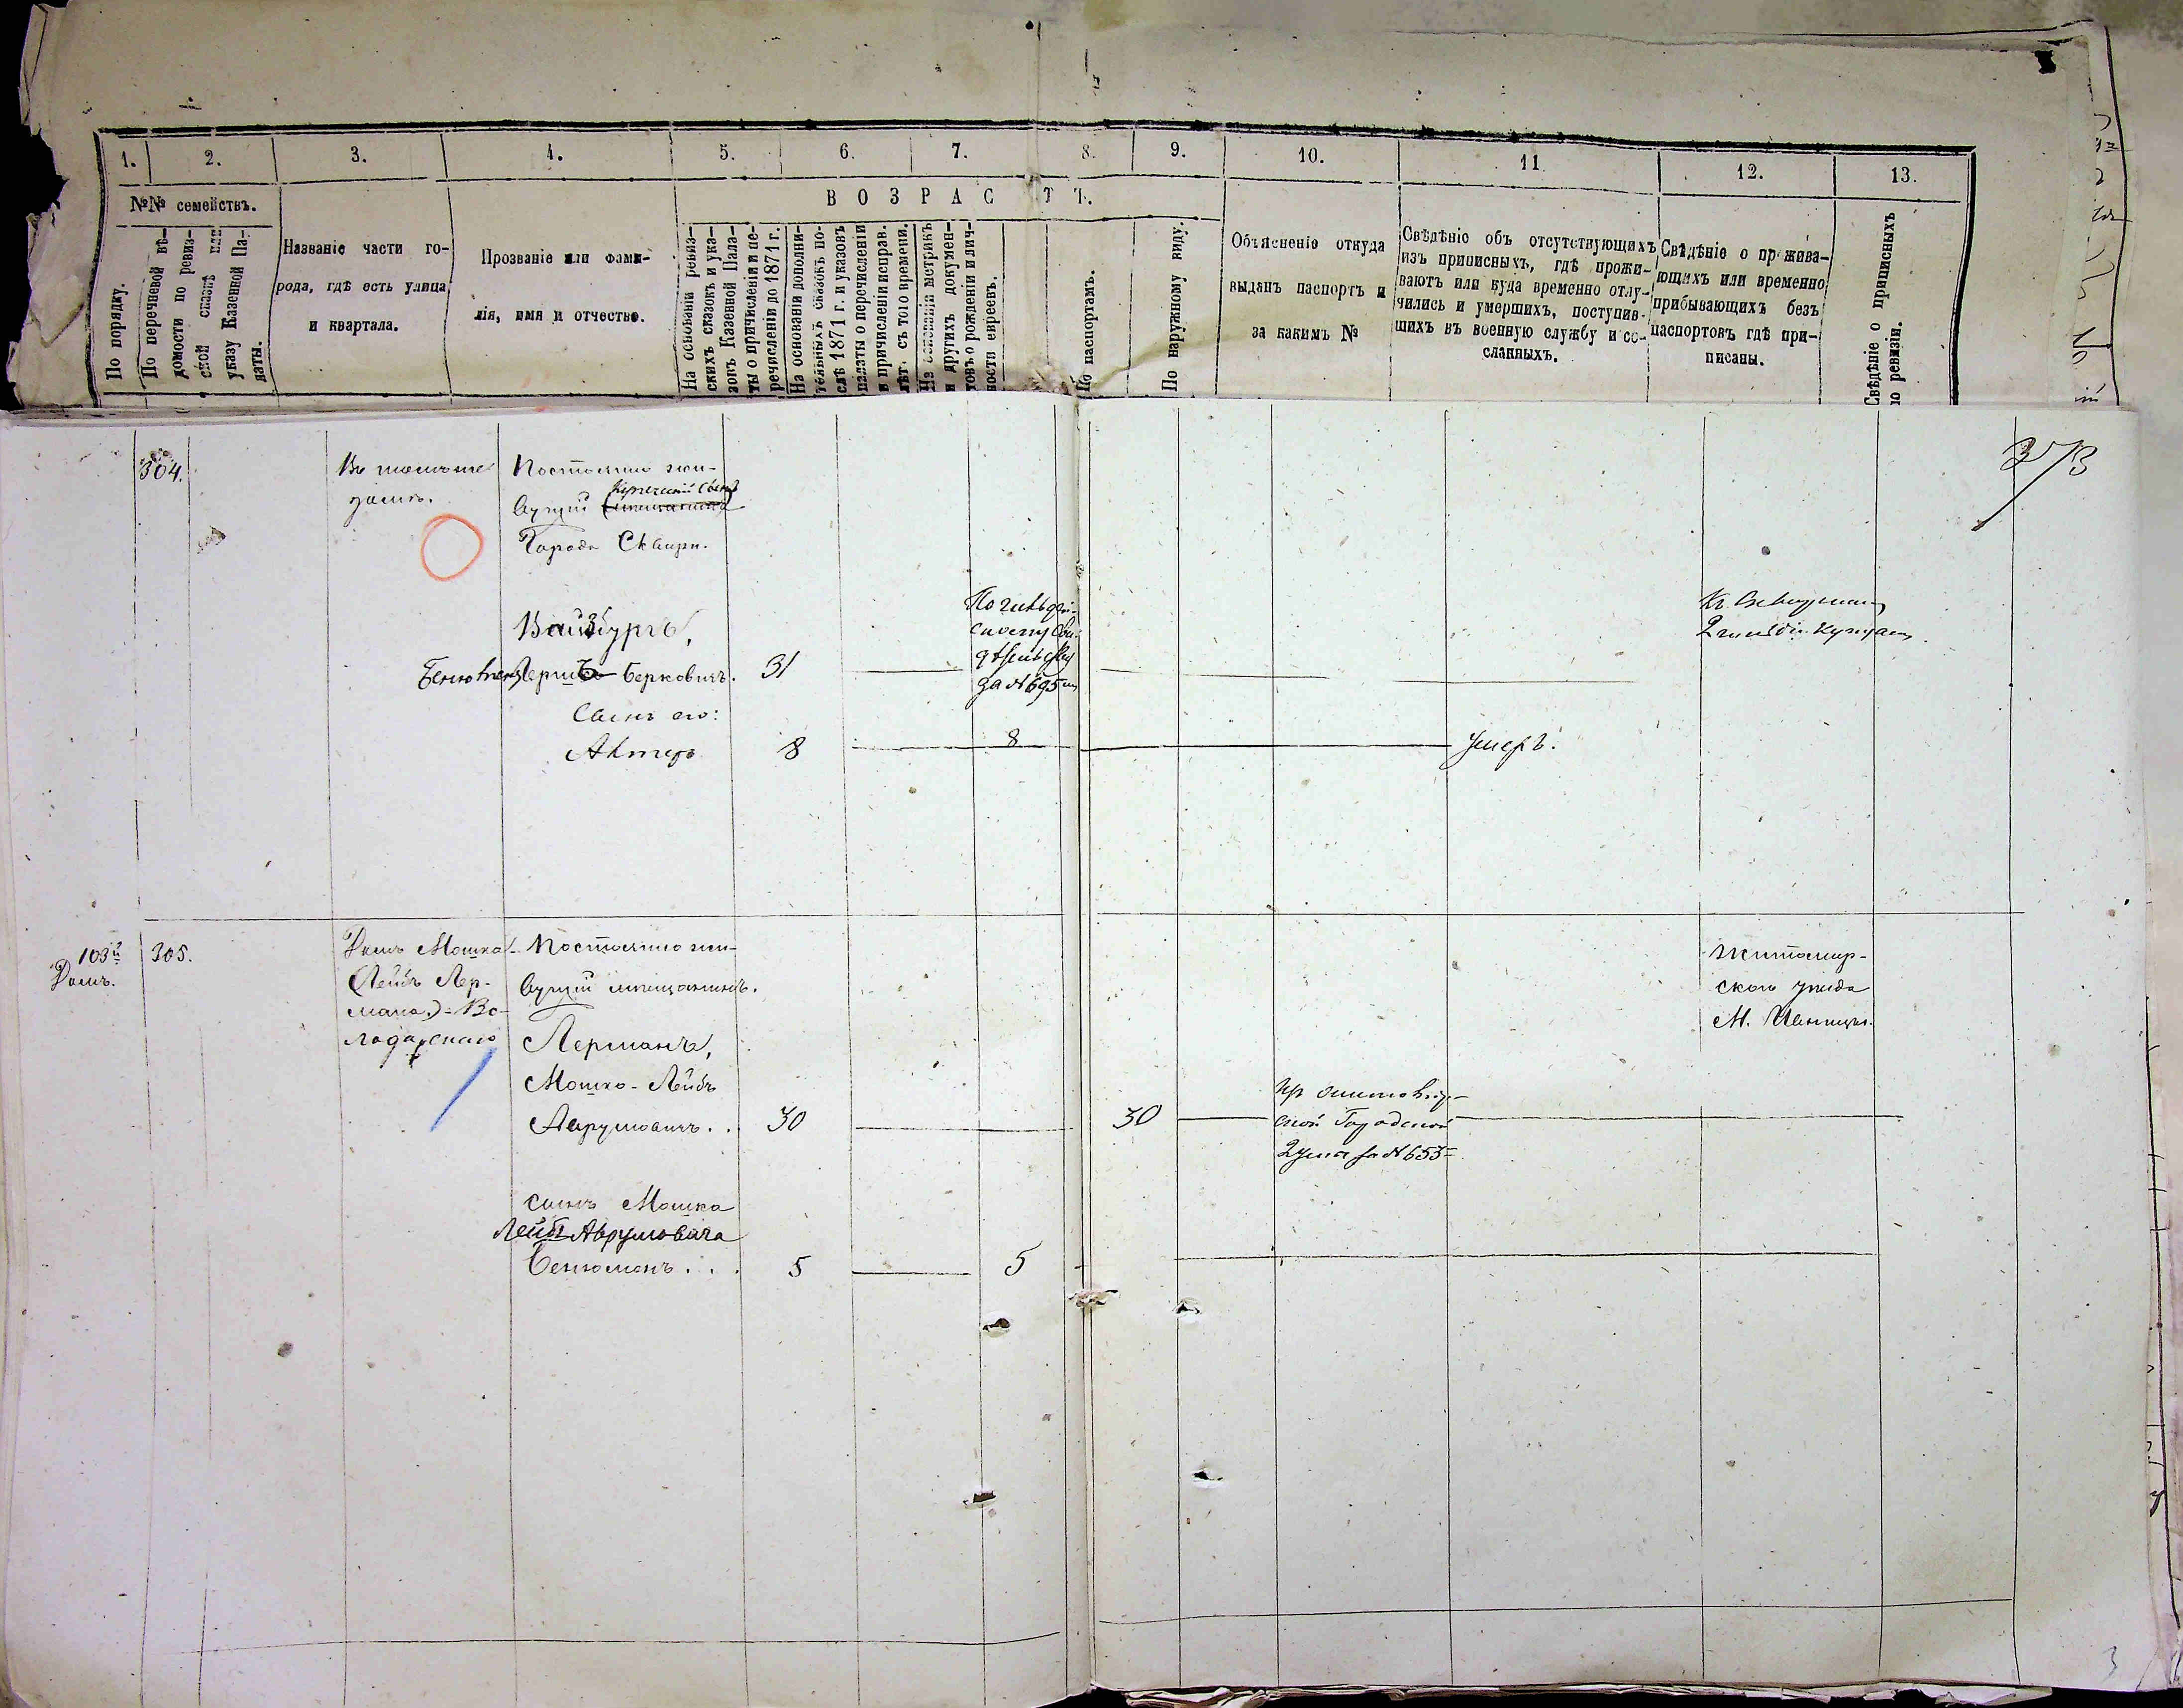 1. 2. 3. 4. 5. 6. 7. 8. 9. 10. 11 12. 13.
№№ семействъ.
ВОЗРАСТЪ.
По порядку.
По перечневой вѣ-
домости по ревиз-
ской сказкѣ или
указу Казенной Па-
латы.
Названіе части го-
рода, гдѣ есть улица
и квартала.
Прозваніе или фами-
лія, имя и отчество.
На основаніи ревиз-
скихъ сказокъ и ука-
зовъ Казенной Пала-
ты о причисленіи и пе-
речисленіи до 1871 г.
На основаніи дополни-
тельныхъ сказокъ по-
слѣ 1871 г. и указовъ
палаты о перечисленіи
и причисленіи исправ.
лѣт. съ того времени.
На основаніи метрикъ
и другихъ докумен-
товъ о рожденіи и лич-
ности евреевъ.
По паспортамъ.
По наружному виду.
Объясненіе откуда
выданъ паспортъ и
за какимъ №
Свѣдѣніе объ отсутствующихъ
изъ приписныхъ, гдѣ прожи-
ваютъ или куда временно отлу-
чились и умершихъ, поступив-
шихъ въ военную службу и со-
сланныхъ.
Свѣдѣніе о прожива-
ющихъ или временно
прибывающихъ безъ
паспортовъ гдѣ при-
писаны.
Свѣдѣніе о приписныхъ
по ревизіи.
273
304.
Въ томъ же
домѣ.
Постоянно жи-
Купеческій сынъ
вущій
Города Сквиры.
Вайзбургъ,
Берковичъ. 31
По
свому сви-
дѣтельству
за № 695
Сынъ его:
Автеръ 8 8 умеръ.
103й
Домъ.
305.
Домъ Мошка
Лейбъ Лер-
мана) - Во-
лодарскаго
Постоянно жи-
вущій мѣщанинъ.
Лерманъ,
Мошко-Лейбъ
Аврумовичъ . . 30 30
ской Городской
Думы за № 653
Житомир-
скаго уѣзда
М. Ивницы.
сынъ Мошка
Лейбъ Аврумовича
Бенюменъ . . . 5 5